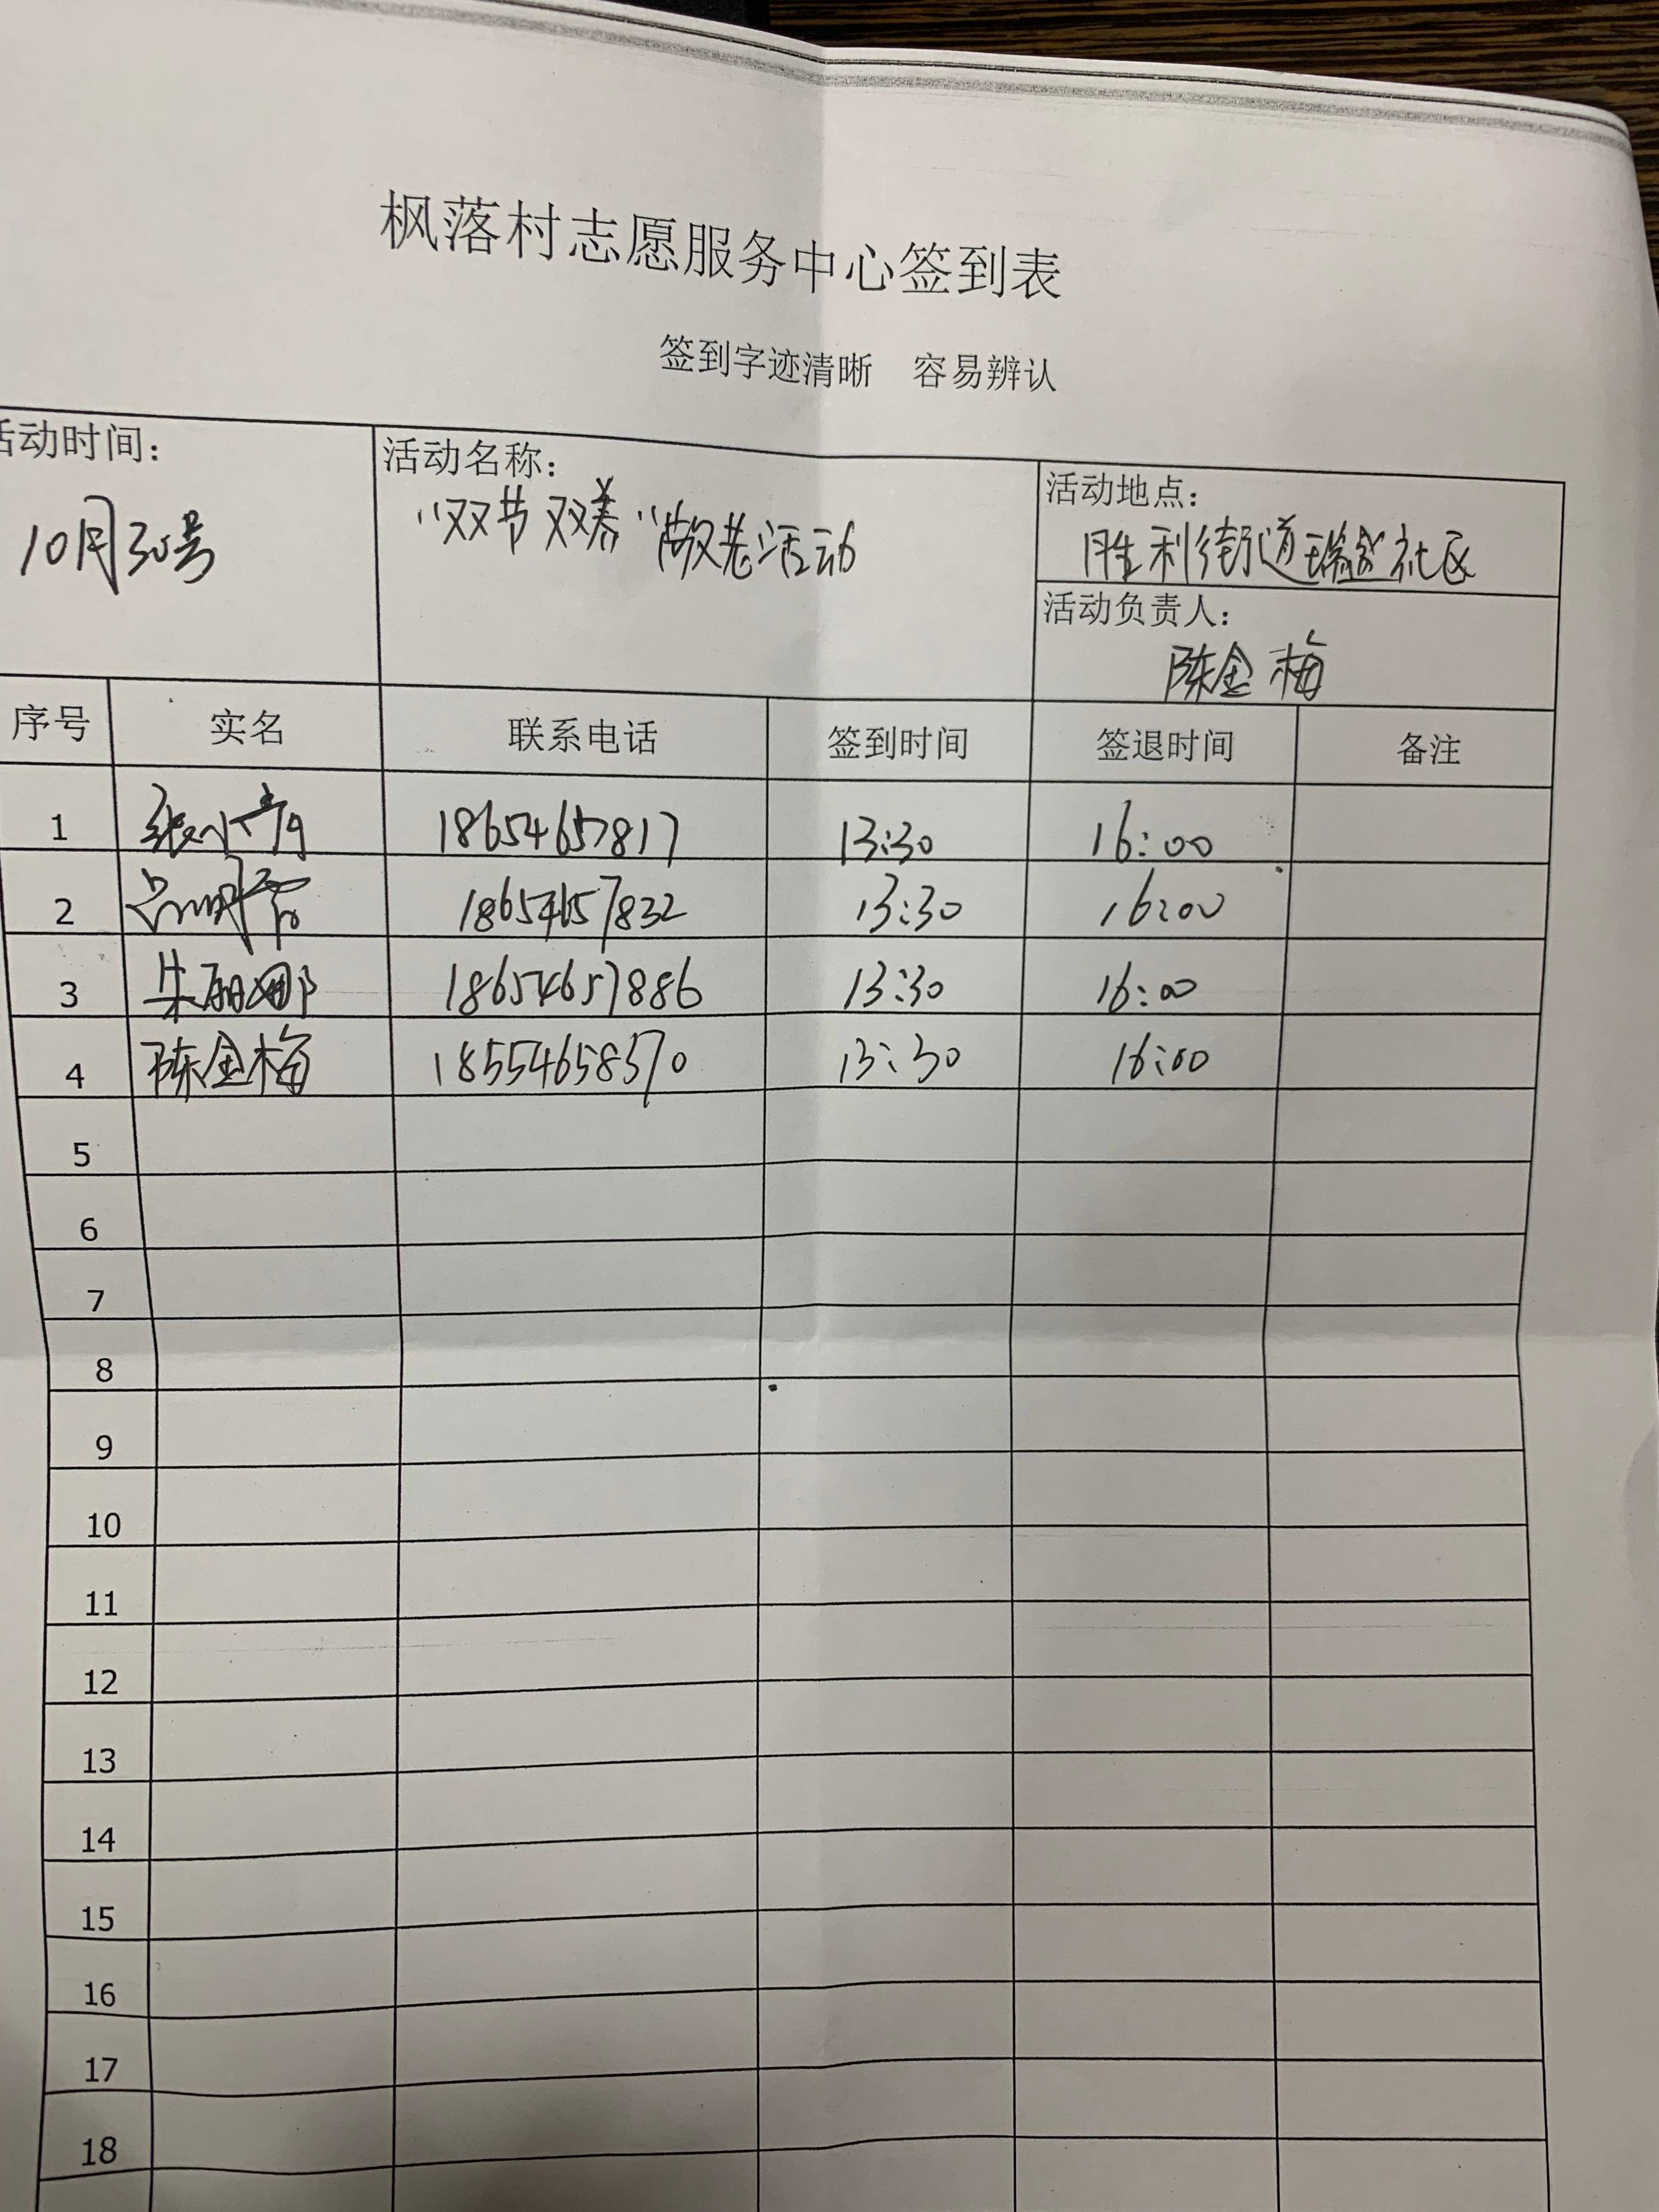 枫落村志愿服务中心签到表
签到字迹清晰 容易辨认
活动时间：
10月30号
活动名称：
“双节双养”敬老活动
活动地点：
胜利街道社区
活动负责人：
陈金梅
序号 实名 联系电话 签到时间 签退时间 备注
1 张 18654657817 13:30 16:00
2 18654657832 13:30 16:00
3 朱丽娜 18654657886 13:30 16:00
4 陈金梅 18554658570 13:30 16:00
5
6
7
8
9
10
11
12
13
14
15
16
17
18